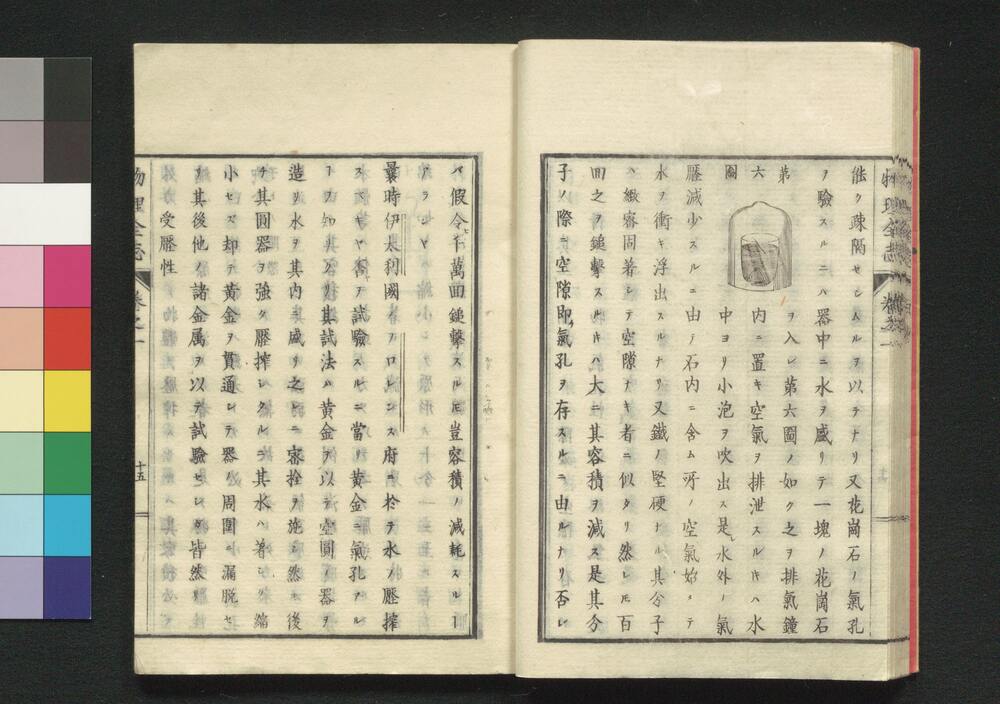 能ク疎隔セシムルヲ以テナリ又花崗石ノ氣孔
ヲ驗スルニハ器中ニ水ヲ盛リテ一塊ノ花崗石
第六圖
ヲ入レ第六圖ノ如ク之ヲ排氣鐘
内ニ置キ空氣ヲ排泄スルキハ水
中ヨリ小泡ヲ吹出ス是レ水外ノ氣
壓減少スルニ由テ石内ニ含ム所ノ空氣始メテ
水ヲ衝キ浮出スルナリ又鐵ノ堅硬ナル其分子
ハ緻密固着シテ空隙ナキ者ニ似タリ然レ𪜈百
回之ヲ鎚擊スルキハ大ニ其容積ヲ減ス是其分
子ノ際ニ空隙即氣孔ヲ存スルニ由ルナリ否レ
ハ假令千萬回鎚擊スル𪜈豈容積ノ減耗スルヿ
アランヤ
曩時伊太利國フロレンス府ニ於テ水ノ壓搾
スヘキヤ否ヲ試驗スルニ當リ黄金ニ氣孔アル
ヿヲ知レリ其試法ハ黄金ヲ以テ空圓ノ器ヲ
造リ水ヲ其内ニ盛リ之ニ密栓ヲ施シ然ル後
チ其圓器ヲ強ク壓搾シタルニ其水ハ著シク縮
小セス却テ黄金ヲ貫通シテ器ノ周圍ニ漏脱セ
リ其後他ノ諸金属ヲ以テ試驗セシカ皆然リ
受壓性
物理全志
卷之一
十五